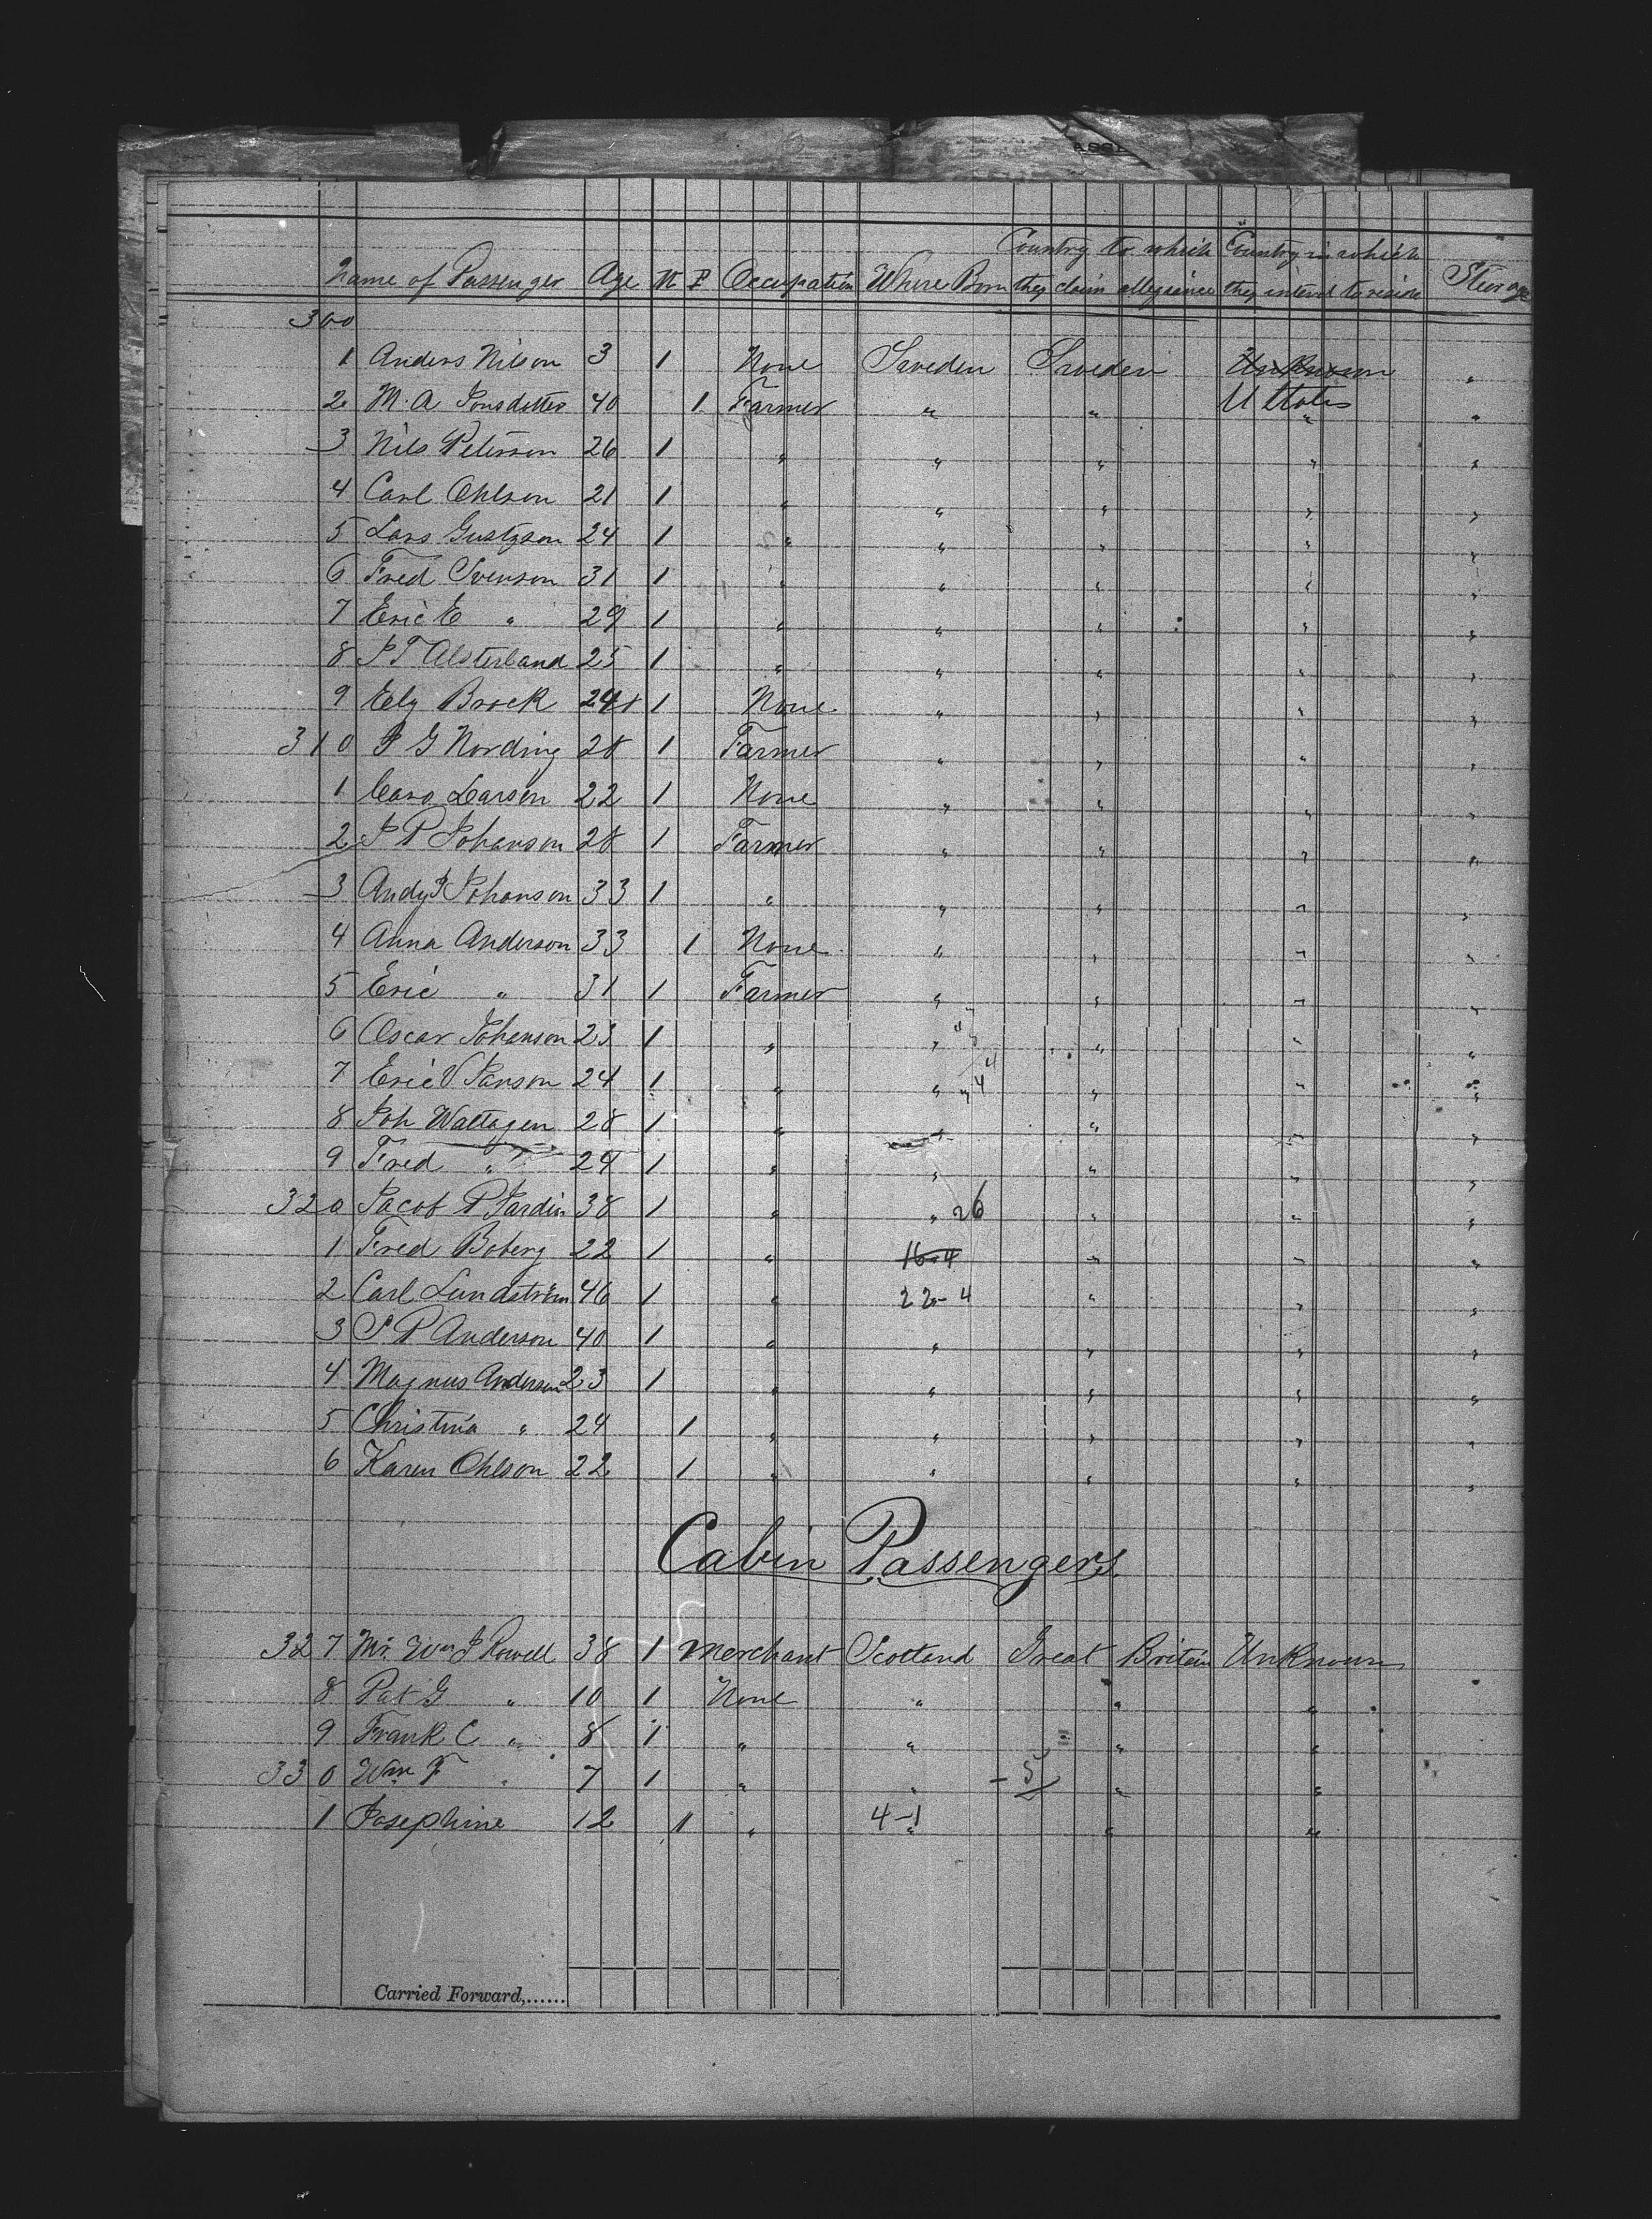 Country to which Country in which
Name of Passenger Age M F Occupation Where Born they claim allegiance they intend to reside Steerage
300
1 Anders Nilson 3 1 None Sweden Sweden Unknown "
2 M. A Jonsdotter 40 1 Farmer " " U States "
3 Nils Peterson 26 1 " " " " "
4 Carl Ohlson 21 1 " " " " "
5 Lars Gustafson 24 1 " " " " "
6 Fred Svenson 31 1 " " " " "
7 Eric E " 29 1 " " " " "
8 J F Alsterland 25 1 " " " " "
9 Ely Brock 24 1 None " " " "
310 J G Nording 28 1 Farmer " " " "
1 Larsen 22 1 None " " " "
2 J P Johanson 28 1 Farmer " " " "
3 Andy J Johanson 33 1 " " " " "
4 Anna Anderson 33 1 None " " " "
5 Eric " 31 1 Farmer " " " "
6 Oscar Johanson 23 1 " " " " "
7 Eric V Janson 24 1 " " 4 " " "
8 Joh Wattagen 28 1 " " " " "
9 Fred " 24 1 " " " " "
320 Jacob P Jardin 38 1 " " 26 " " "
1 Fred Boberg 22 1 " 16-4 " " "
2 Carl Lundström 46 1 " 22-4 " " "
3 J P Anderson 40 1 " " " " "
4 Magnus Anderson 23 1 " " " " "
5 Christina " 24 1 " " " " "
6 Karen Ohlson 22 1 " " " " "
Cabin Passengers
327 Mr. Wm J Rowell 38 1 Merchant Scotland Great Britain Unknown
8 Pat G " 10 1 None " " "
9 Frank C " 8 1 " " " "
330 Wm F " 7 1 " " - 5 " "
1 Josephine 12 1 " 4-1 " "
Carried Forward,......